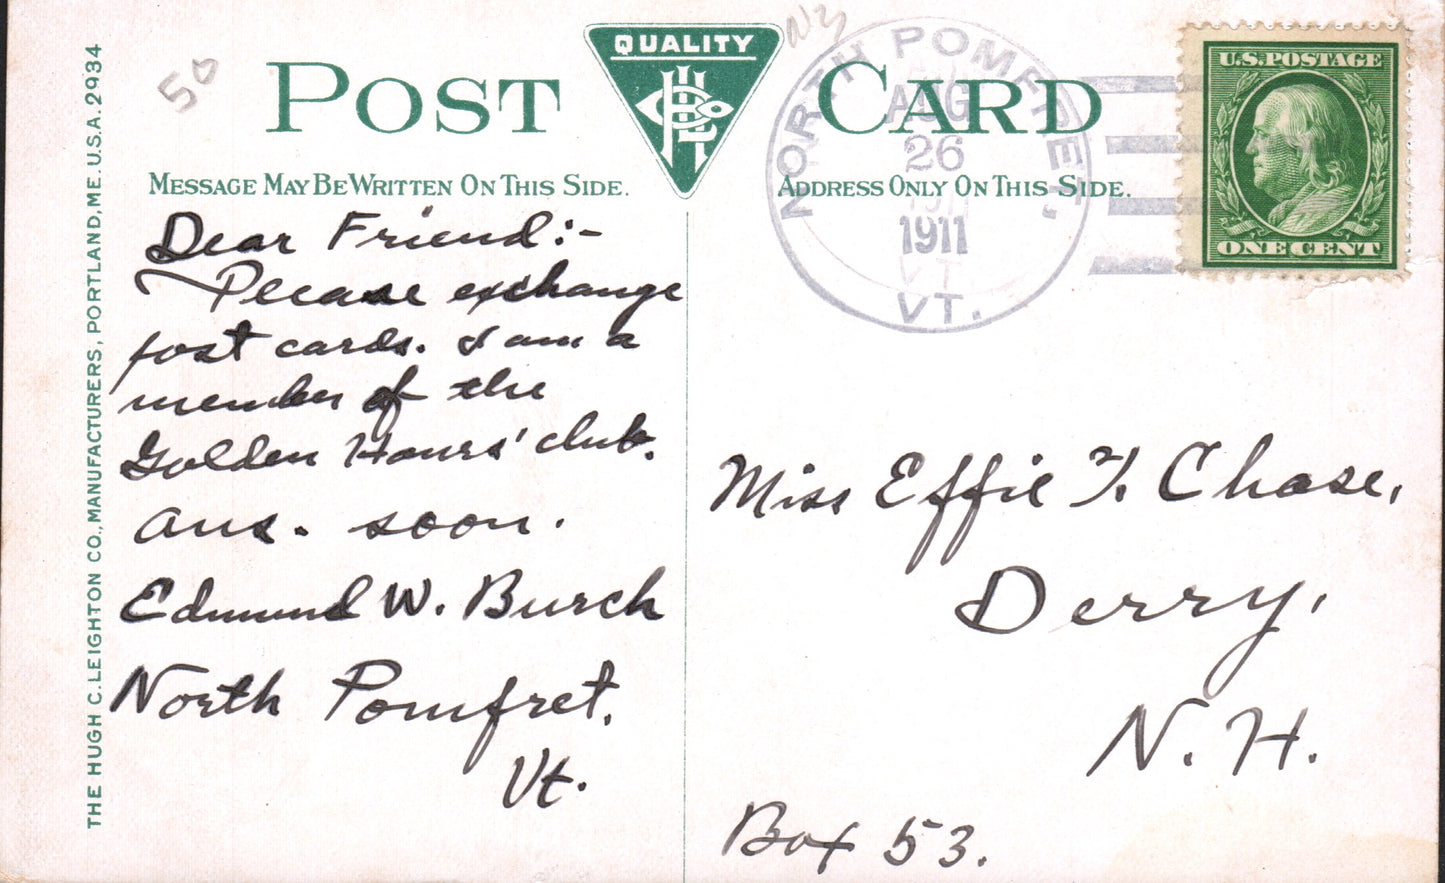 50
NY
POST CARD
QUALITY
MESSAGE MAY BE WRITTEN ON THIS SIDE.
ADDRESS ONLY ON THIS SIDE.
NORTH POMFRET,
AUG
26
1911
VT.
U.S. POSTAGE
ONE CENT
Dear Friend:-
Please exchange
post cards. I am a
member of the
Golden Hours' club.
ans. soon.
Edmund W. Burch
North Pomfret,
Vt.
Miss Effie F. Chase,
Derry,
N. H.
Box 53.
THE HUGH C. LEIGHTON CO., MANUFACTURERS, PORTLAND, ME. U.S.A. 2934